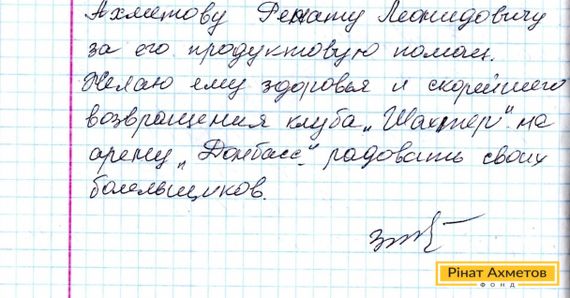 Ахметову Ренату Леонидовичу
за его продуктовую помощ.
Желаю ему здоровья и скорейшего
возвращения клуба „Шахтер" на
арену „Донбасс". радовать своих
болельщиков.
Рінат Ахметов
ФОНД